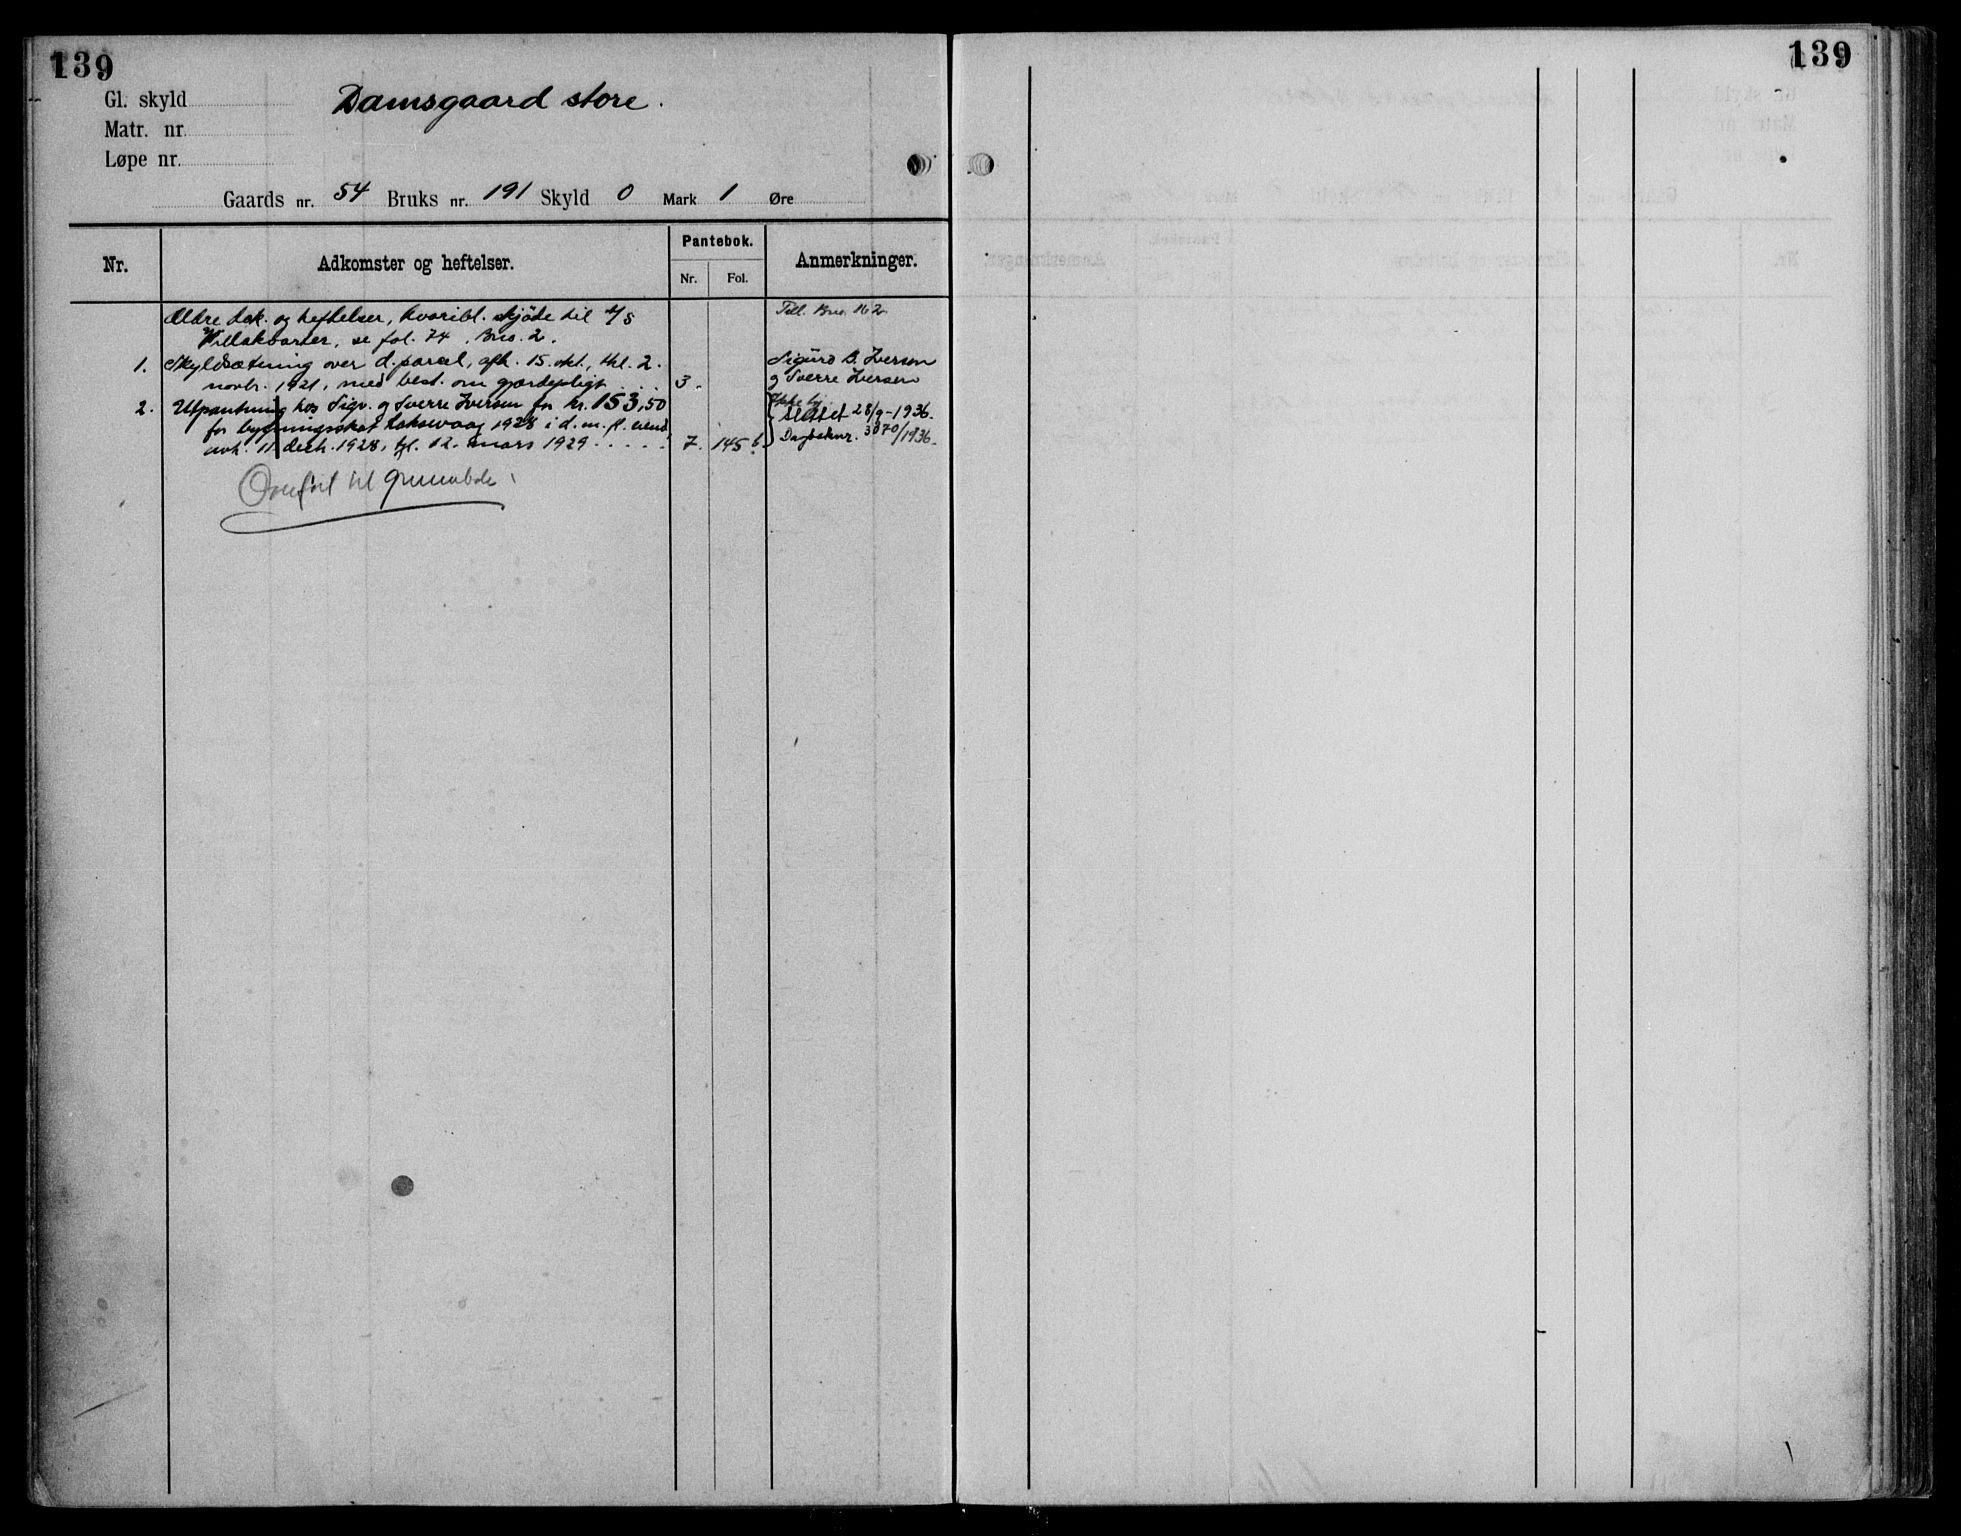 139
139
Gl. skyld
Damsgaard store.
Matr. nr.
Løpe nr.
Gaards nr. 54 Bruks nr. 191 Skyld 0 Mark 1 Øre
Nr.
Adkomster og heftelser.
Pantebok.
Nr.
Fol.
Anmerkninger.
Ældre dok. og heftelser, hvoribl. skjöde til A/S
Till. Bno. 162
Villakvarter, se fol. 74, Bno. 2.
1. Skyldsætning over d. parcel, afh. 15. okt., thl. 2.
Sigurd B. Iversen
novbr. 1921, med best. om gjærdepligt . . . . 3.
og Sverre Iversen
2. Utpantning hos Sigv. og Sverre Iversen for kr. 153,50
for bygningsskat Laksevaag 1928 i d. m. fl. eiend.
Slettet 28/9-1936.
avh. 11 decb. 1928, tgl. 12. mars 1929 . . . . . 7. 145b.
Dagboknr. 3070/1936.
Overført til grunnbok